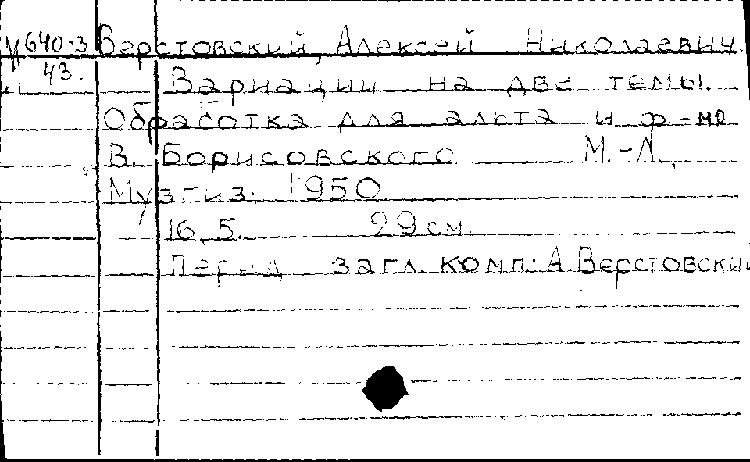 М640-3 Верстовский, Алексей Николаевич.
43. Вариации на две темы.
Обработка для альта и ф-но
В. Борисовского М.-Л.,
Музгиз. 1950
16, 5. 29см.
Перед загл. комп.: А Верстовский